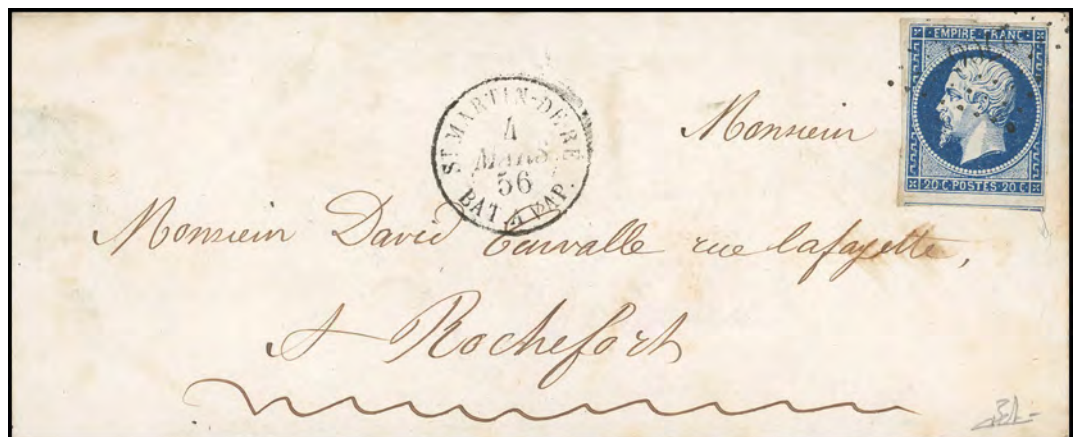 EMPIRE FRANC
20 C POSTES 20 C
ST MARTIN-DE-RÉ
4
MARS
56
BAT À VAP.
Monsieur
Monsieur David rue lafayette,
Rochefort